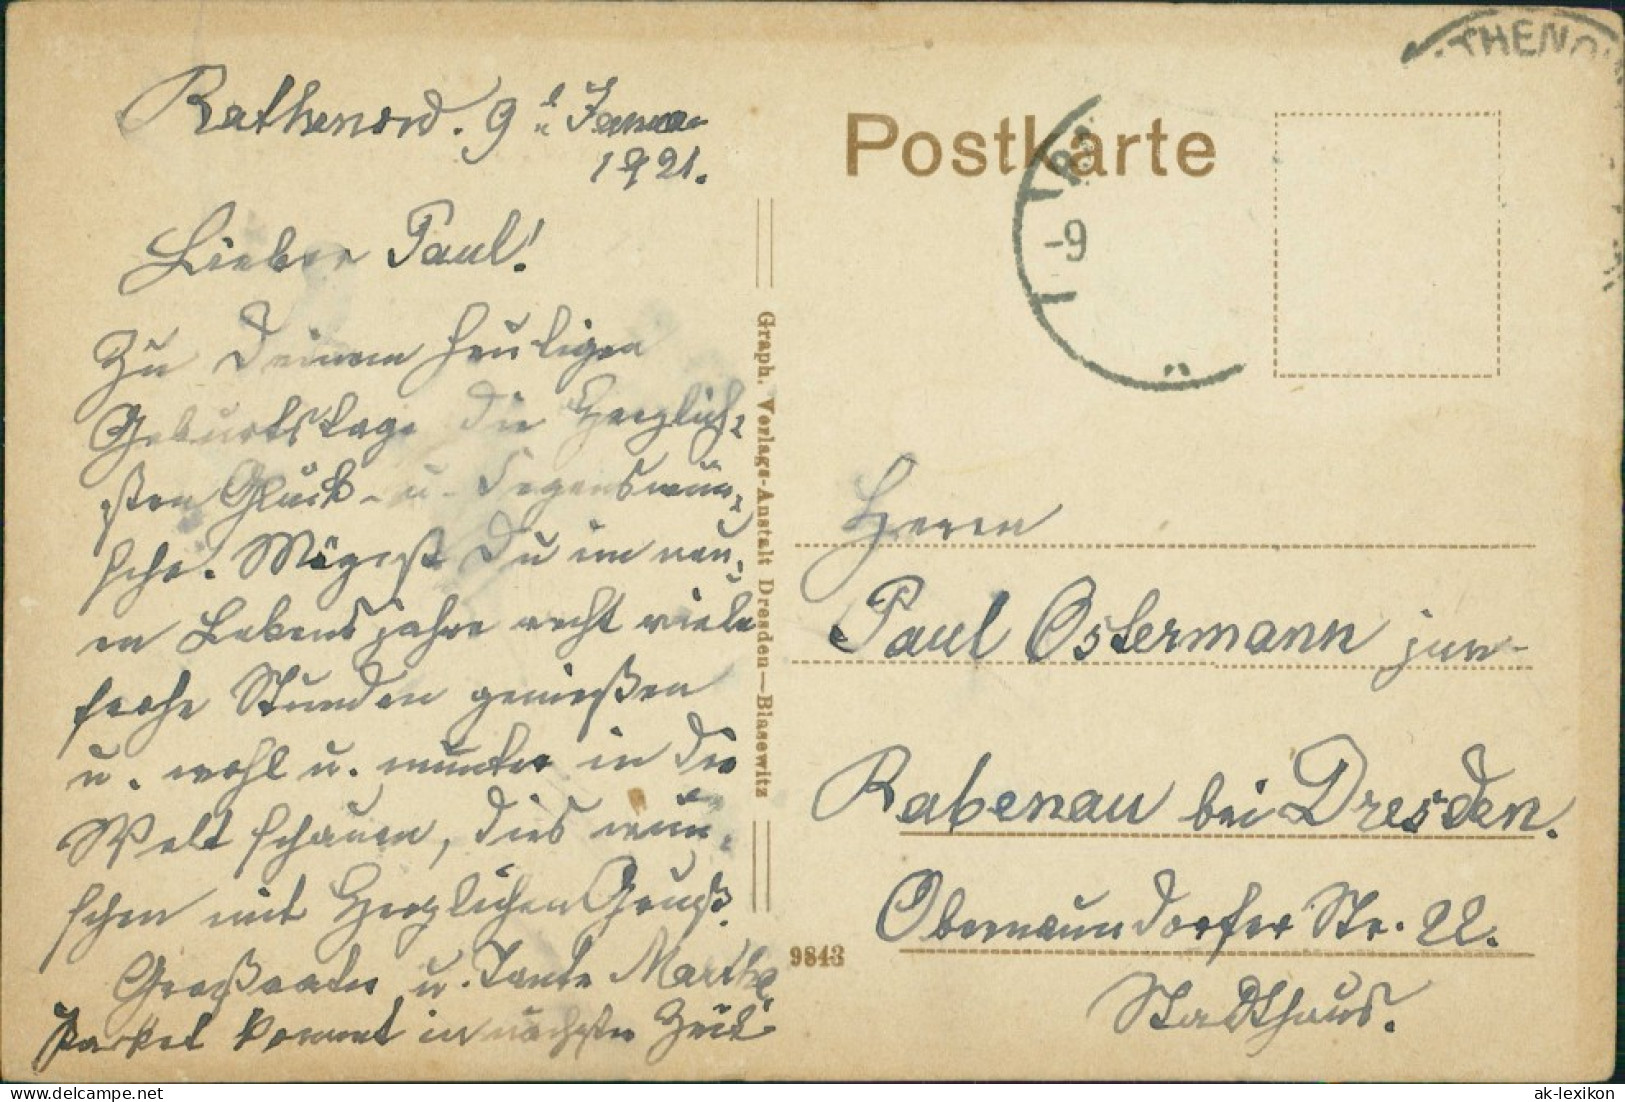 Rathenow. 9. d. Januar
1921.
Lieber Paul!
Zu Deinem heutigen
Geburtstage die Herzlich-
sten Glück- u. Segenswün-
sche. Mögest Du im neu-
en Lebensjahre recht viele
frohe Stunden genießen
u. wohl u. munter in die
Welt schauen, dies wün-
schen mit Herzlichen Gruß
Großvater u. Tante Martha
Packet kommt in nächster Zeit
Graph. Verlags-Anstalt Dresden—Blasewitz
9843
THENO
Postkarte
-9
Herrn
Paul Ostermann jun-
Rabenau bei Dresden.
Obernaundorfer Str. 22.
Stadthaus.
ak-ansichtskarten.de
ak-lexikon